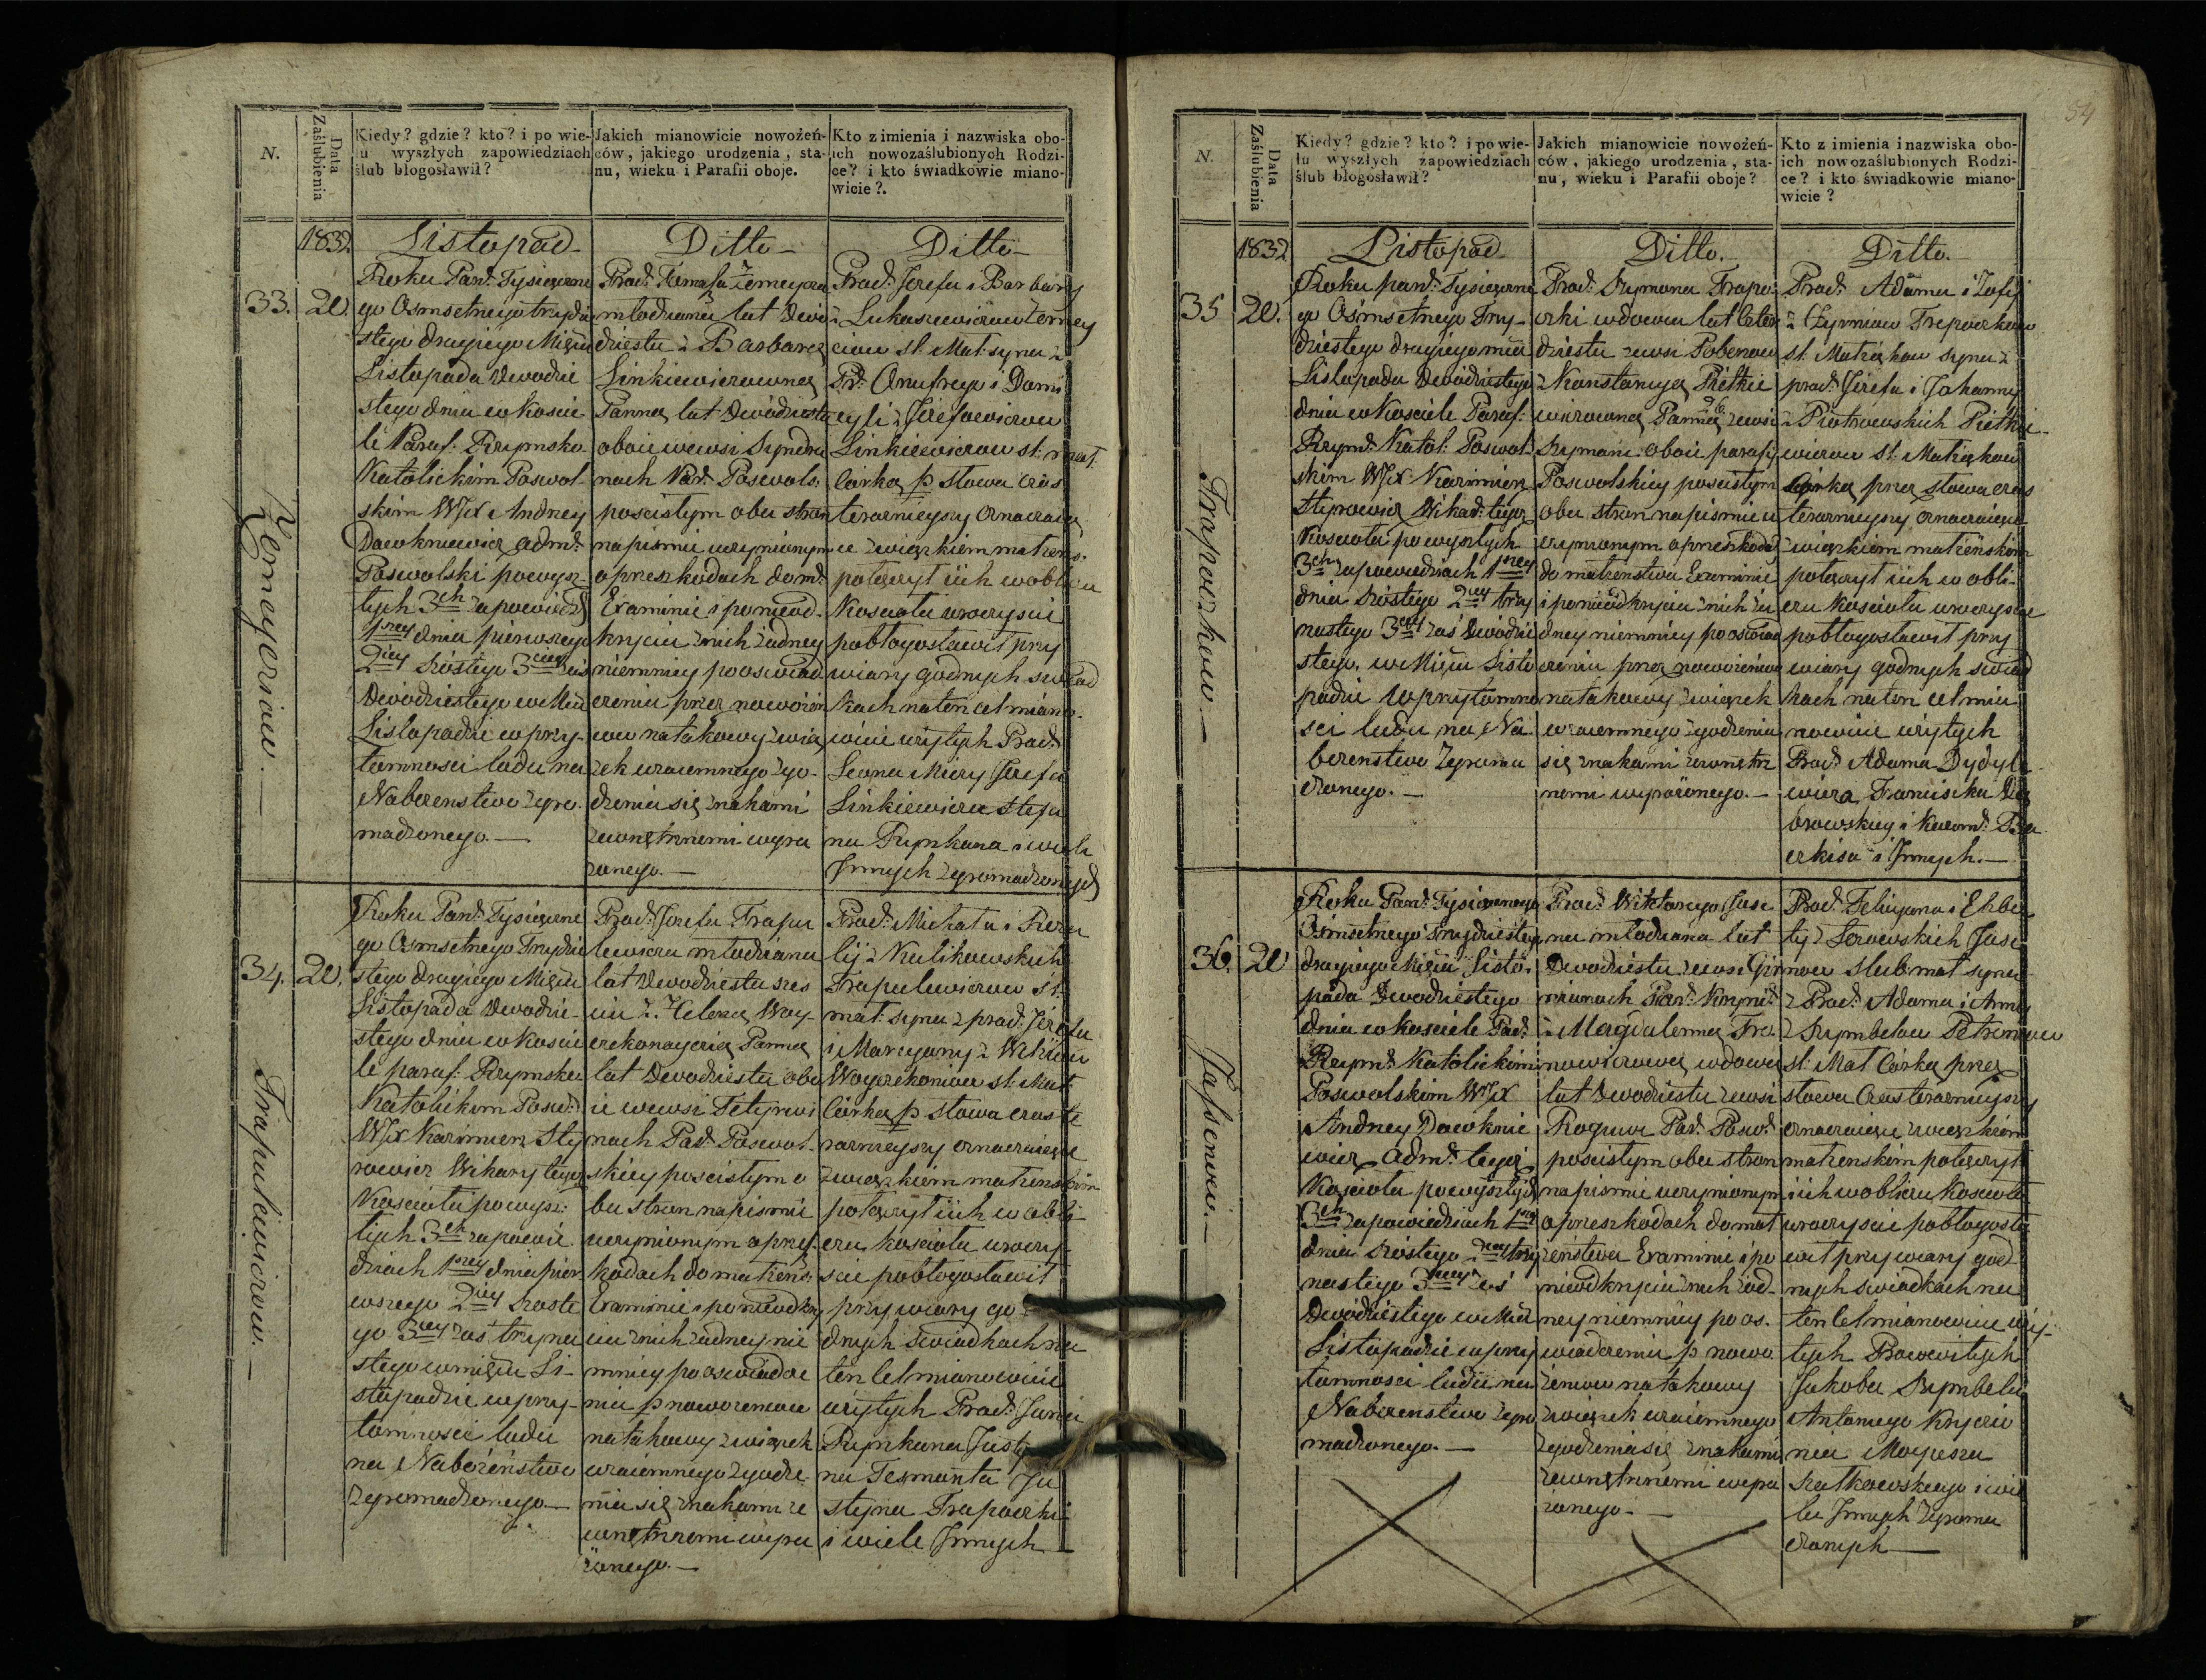 N.
Data
Zaślubienia
Kiedy? gdzie? kto? i po wie-
lu wyszłych zapowiedziach
ślub błogosławił?
Jakich mianowicie nowożeń-
ców, jakiego urodzenia, sta-
nu, wieku i Parafii oboje.
Kto z imienia i nazwiska obo-
ich nowozaślubionych Rodzi-
ce? i kto świadkowie miano-
wicie?.
1832
Listopad
Ditto
Ditto
33.
20.
Roku Pań: Tysiączne
go Osmsetnego trzydzie
stego drugiego Miesią
Listopada dwodzie
stego dnia w Koscie
le Paraf: Rzymsko
Katolickim Poswol
skim WJX Andrzey
Dawkniewicz adm:
Poswolski powysz
łych 3ch zapowiedz
1szey dnia pierwszego
2iey szóstego 3ciey zaś
Dwódziestego w Mcu
Listopadzie w przy-
tomnosci ludu na
Nabożenstwo zgro
madzonego.
Prac: Tomasza Żemeyca
młodziana lat dwó
dziestu z Barbarą
Linkiewiczowną
Panną lat Dwódziestu
oboie wewsi
nach Par: Poswols:
pościsłym obu stron
napismie uczynionym
o przeszkodach do mł:
Examinie i ponieod
kryciu z nich żadney
niemniey po oswiad
czeniu przez nowożeń
ców na takowy zwią
zek wzaiemnego zgo
dzenia się znakami
zewnętrznemi wyra
żonego.
Prac: Jozefa i Barbary
z Łukaszewiczow Żemey
cow sl: Mat: syna z
Pr: Onufrego i Dom
cylli z Jozefowiczow
Linkiewiczow sl: mat:
Córką p słowa czas
teraznieyszy oznaczaią
ce związkiem małżeńs:
połączył iich w obliczu
Kosciołu uroczyscie
pobłogosławił przy
wiary godnych swiad
kach na ten cel miano
wicie użytych Prac:
Leona Mieży Jozefa
Linkiewicza Stefa
na Pupkana i wiele
Innych zgromadzonych
Żemeycriow.
34.
20.
Roku Pań: Tysiączne
go Osmsetnego Trzydzie
stego drugiego Miesią
Listopada dwodzie
stego dnia w Koscie
le paraf: Rzymsko
Katolickim Posw:
WJX Kazimierz Sty
rowicz Wikary tegoż
Kosciołu powysz
łych 3ch zapowie
dziach 1szey dnia pier
wszego 2iey szoste
go 3ciey zaś trzyna
stego w miescu Li
stopadzie w przy
tomnosci ludu
na Nabożeństwo
zgromadzonego
Prac: Jozefa Trapu
lewicza młodziana
lat Dwodziestu szes
ciu z Heleną Woy
czekonaycią Panną
lat Dwodziestu obo
ie wewsi Tetyrwi
nach Par: Poswol
skiey pościsłym o
bu stron napismie
uczynionym o przesz
kodach do małżeńs:
Examinie i ponieodkry
ciu z nich żadney nie
mniey po oswiadcze
niu p nowożeńcow
na takowy związek
wzaiemnego zgodze
nia się znakami ze
wnętrznemi wyra
żonego.
Prac: Michała i Roza
lij z Kulikowskich
Trapulewiczow sl:
mat: syna z prac: Jozefa
i Maryanny z
Woyczekoniow sl: Mat:
Córką p słowa czas te
raznieyszy oznaczaiące
związkiem małżenskim
połączył iich w obli
czu kosciołu uroczy
scie pobłogosławił
przy wiary go
dnych swiadkach na
ten cel mianowicie
użytych Prac: Jana
Pupkana Justy
na Tesmonta Ju
styna Trapaczki
i wiele Innych
Trapulewiczow.
54
N.
Data
Zaślubienia
Kiedy? gdzie? kto? i po wie-
lu wyszłych zapowiedziach
ślub błogosławił?
Jakich mianowicie nowożeń-
ców, jakiego urodzenia, sta-
nu, wieku i Parafii oboje?
Kto z imienia i nazwiska obo-
ich nowozaślubionych Rodzi-
ce? i kto świadkowie miano-
wicie?
1832
Listopad
Ditto.
Ditto.
35
20.
Roku pań: Tysiączne
go Osmsetnego Trzy
dziestego drugiego mca
Listopada Dwódziestego
dnia w Kosciele Paraf:
Rzym: Katol: Poswol
skim WJX Kazimierz
Styrowicz Wikar: tegoż
Kosciołu powyszłych
3ch zapowiedziach 1szey
dnia szóstego 2iey trzy
nastego 3ciey zaś Dwódzie
stego. w Miescu Listo
padzie w przytomno
sci ludu na Na
bożenstwo zgroma
dzonego.
Prac: Szymona Trapo
czki wdowca lat
dziestu zewsi Pobenow
z Konstancyą Pietkie
wiczowną Panną zewsi
Szymani oboie parafij
Poswolskiey pościsłym
obu stron na pismie u
czynionym o przeszkodach
do małżenstwa Examinie
i ponieodkryciu z nich ża
dney niemniey po oswiad
czeniu przez nowożeńcow
na takowy związek
wzaiemnego zgodzenia
się znakami zewnętrz
nemi wyrażonego.
Prac: Adama i Zofij
z Trapoczkow
sl: Małżąkow syna z
prac: Jozefa i Johanny
z Piotrowskich Pietkie
wiczow sl: Małżąkow
Córką przez słowa czas
teraznieyszy oznaczaiące
związkiem małżeńskim
połączył iich w obli
czu Kosciołu uroczyscie
pobłogosławił przy
wiary godnych swiad
kach na ten cel mia
nowicie użytych
Prac: Adama Dydyle
wicza Franciszka
browskiey i Kazim:
i Innych.
Trapoczkow.
36.
20
Roku Pań: Tysiącznego
Osmsetnego trzydziestego
drugiego Miesią Listo
pada Dwodziestego
dnia w kosciele Par:
Rzym: Katolickim
Poswolskim WJX
Andrzey Dawknie
wicz Adm: tegoż
Kosciołu powyszłych
3ch zapowiedziach 1szey
dnia szóstego 2iey trzy
nastego 3ciey zaś
Dwódziestego w Mcu
Listopadzie w przy
tomnosci ludu na
Nabożenstwo zgro
madzonego.
Prac: Wiktorego Jasie
na młodziana lat
Dwodziestu zewsi Gir
niunach Par:
z Magdaleną
wdową
lat Dwodziestu zewsi
Par: Posw:
pościsłym obu stron
napismie uczynionym
o przeszkodach do mał
żeństwa Examinie i po
nieodkryciu z nich żad
ney niemniey po os
wiadczeniu p nowo
żeńcow na takowy
związek wzaiemnego
zgodzenia się znakami
zewnętrznemi wyra
żonego.
Prac: Felicyana i Elżbie
ty z Serewskich Jasie
now slub mat syna
z Prac: Adama i Anny
z Szymbelow
sl: Mat Córką przez
słowa Czas teraznieyszy
oznaczaiące związkiem
małżenskim połączył
iich w obliczu Kosciołu
uroczyscie pobłogosła
wił przy wiary god
nych swiadkach na
ten cel mianowicie uży
tych Pracowitych
Jakoba Szymbela
Antoniego
Mateusza
Szatkowskiego i wie
le Innych zgroma
dzonych
Jasienow.